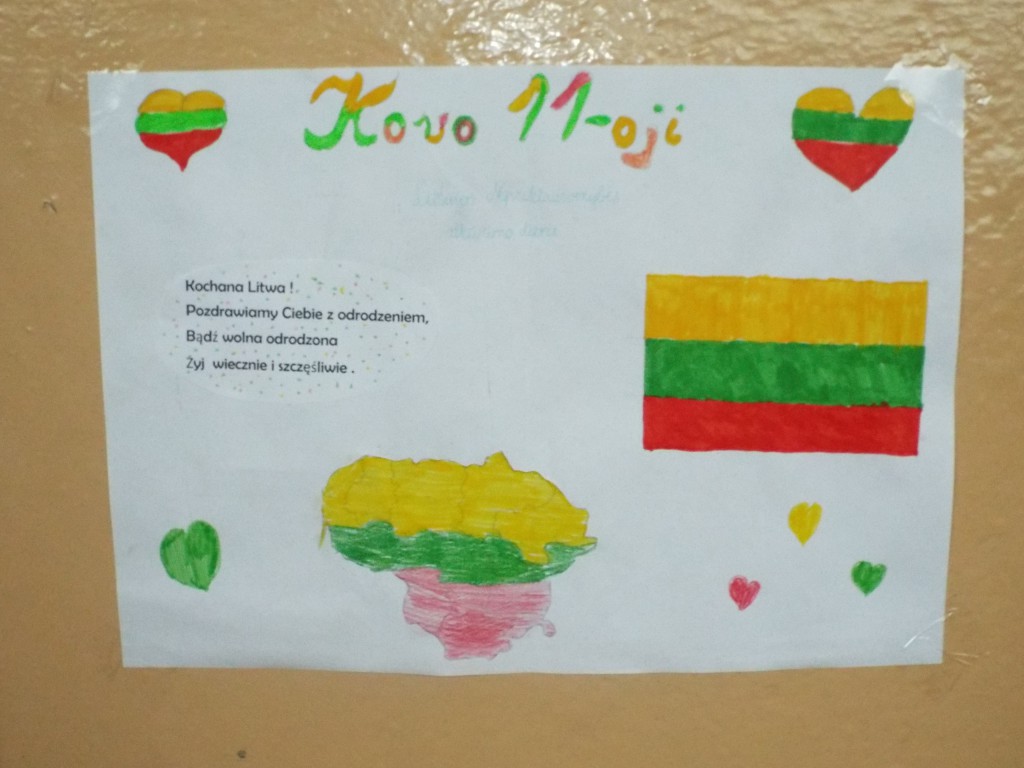 Kovo 11-oji
Kochana Litwa !
Pozdrawiamy Ciebie z odrodzeniem,
Bądź wolna odrodzona
Żyj wiecznie i szczęśliwie .